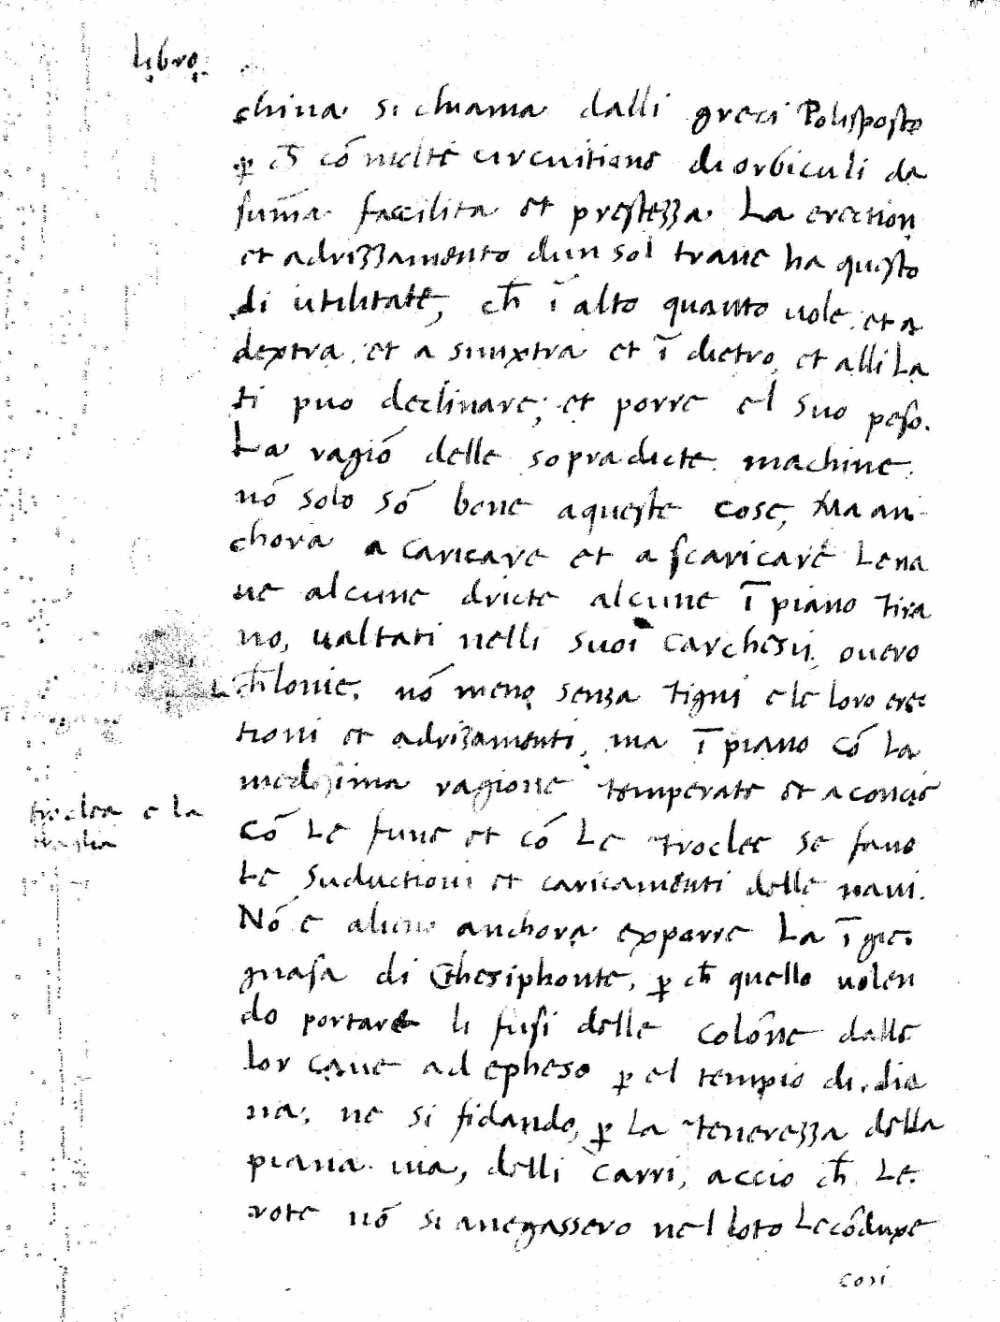 libro
china si chiama dalli greci Polispasto
ꝑ ch̄ cō molte circuitione di orbiculi da
sum̄a faccilita et prestezza. La erection
et adrizzamento dun sol trave ha questo
di utilitate, ch̄ ī alto quanto vole et a
dextra et a sinixtra et ī dietro et alli la
ti puo declinare, et porre el suo peso.
La ragiō delle sopradicte machine
nō solo sō bone a queste cose, Ma an
chora a caricare et a scaricare Le na
ve alcune dricte alcune ī piano tira
no, valtati nelli suoi carchesii overo
ch̄lonie. nō meno senza tigni e le loro erec
tioni et adrizamenti, ma ī piano cō La
medesima ragione temperate et aconcie
troclea e la
traglia
cō Le fune et cō Le troclee se fano
Le suductioni et caricamenti delle navi.
Nō e alieno anchora exporre La īge
gnasa di Chesiphonte, ꝑ ch̄ quello volen
do portare li fusi delle colōne dalle
lor cave ad epheso ꝑ el tempio di dia
na, ne si fidando, ꝑ La tenerezza della
piana via, delli carri, accio ch̄ Le
rote nō si anegassero nel loto Le cōduxe
cosi